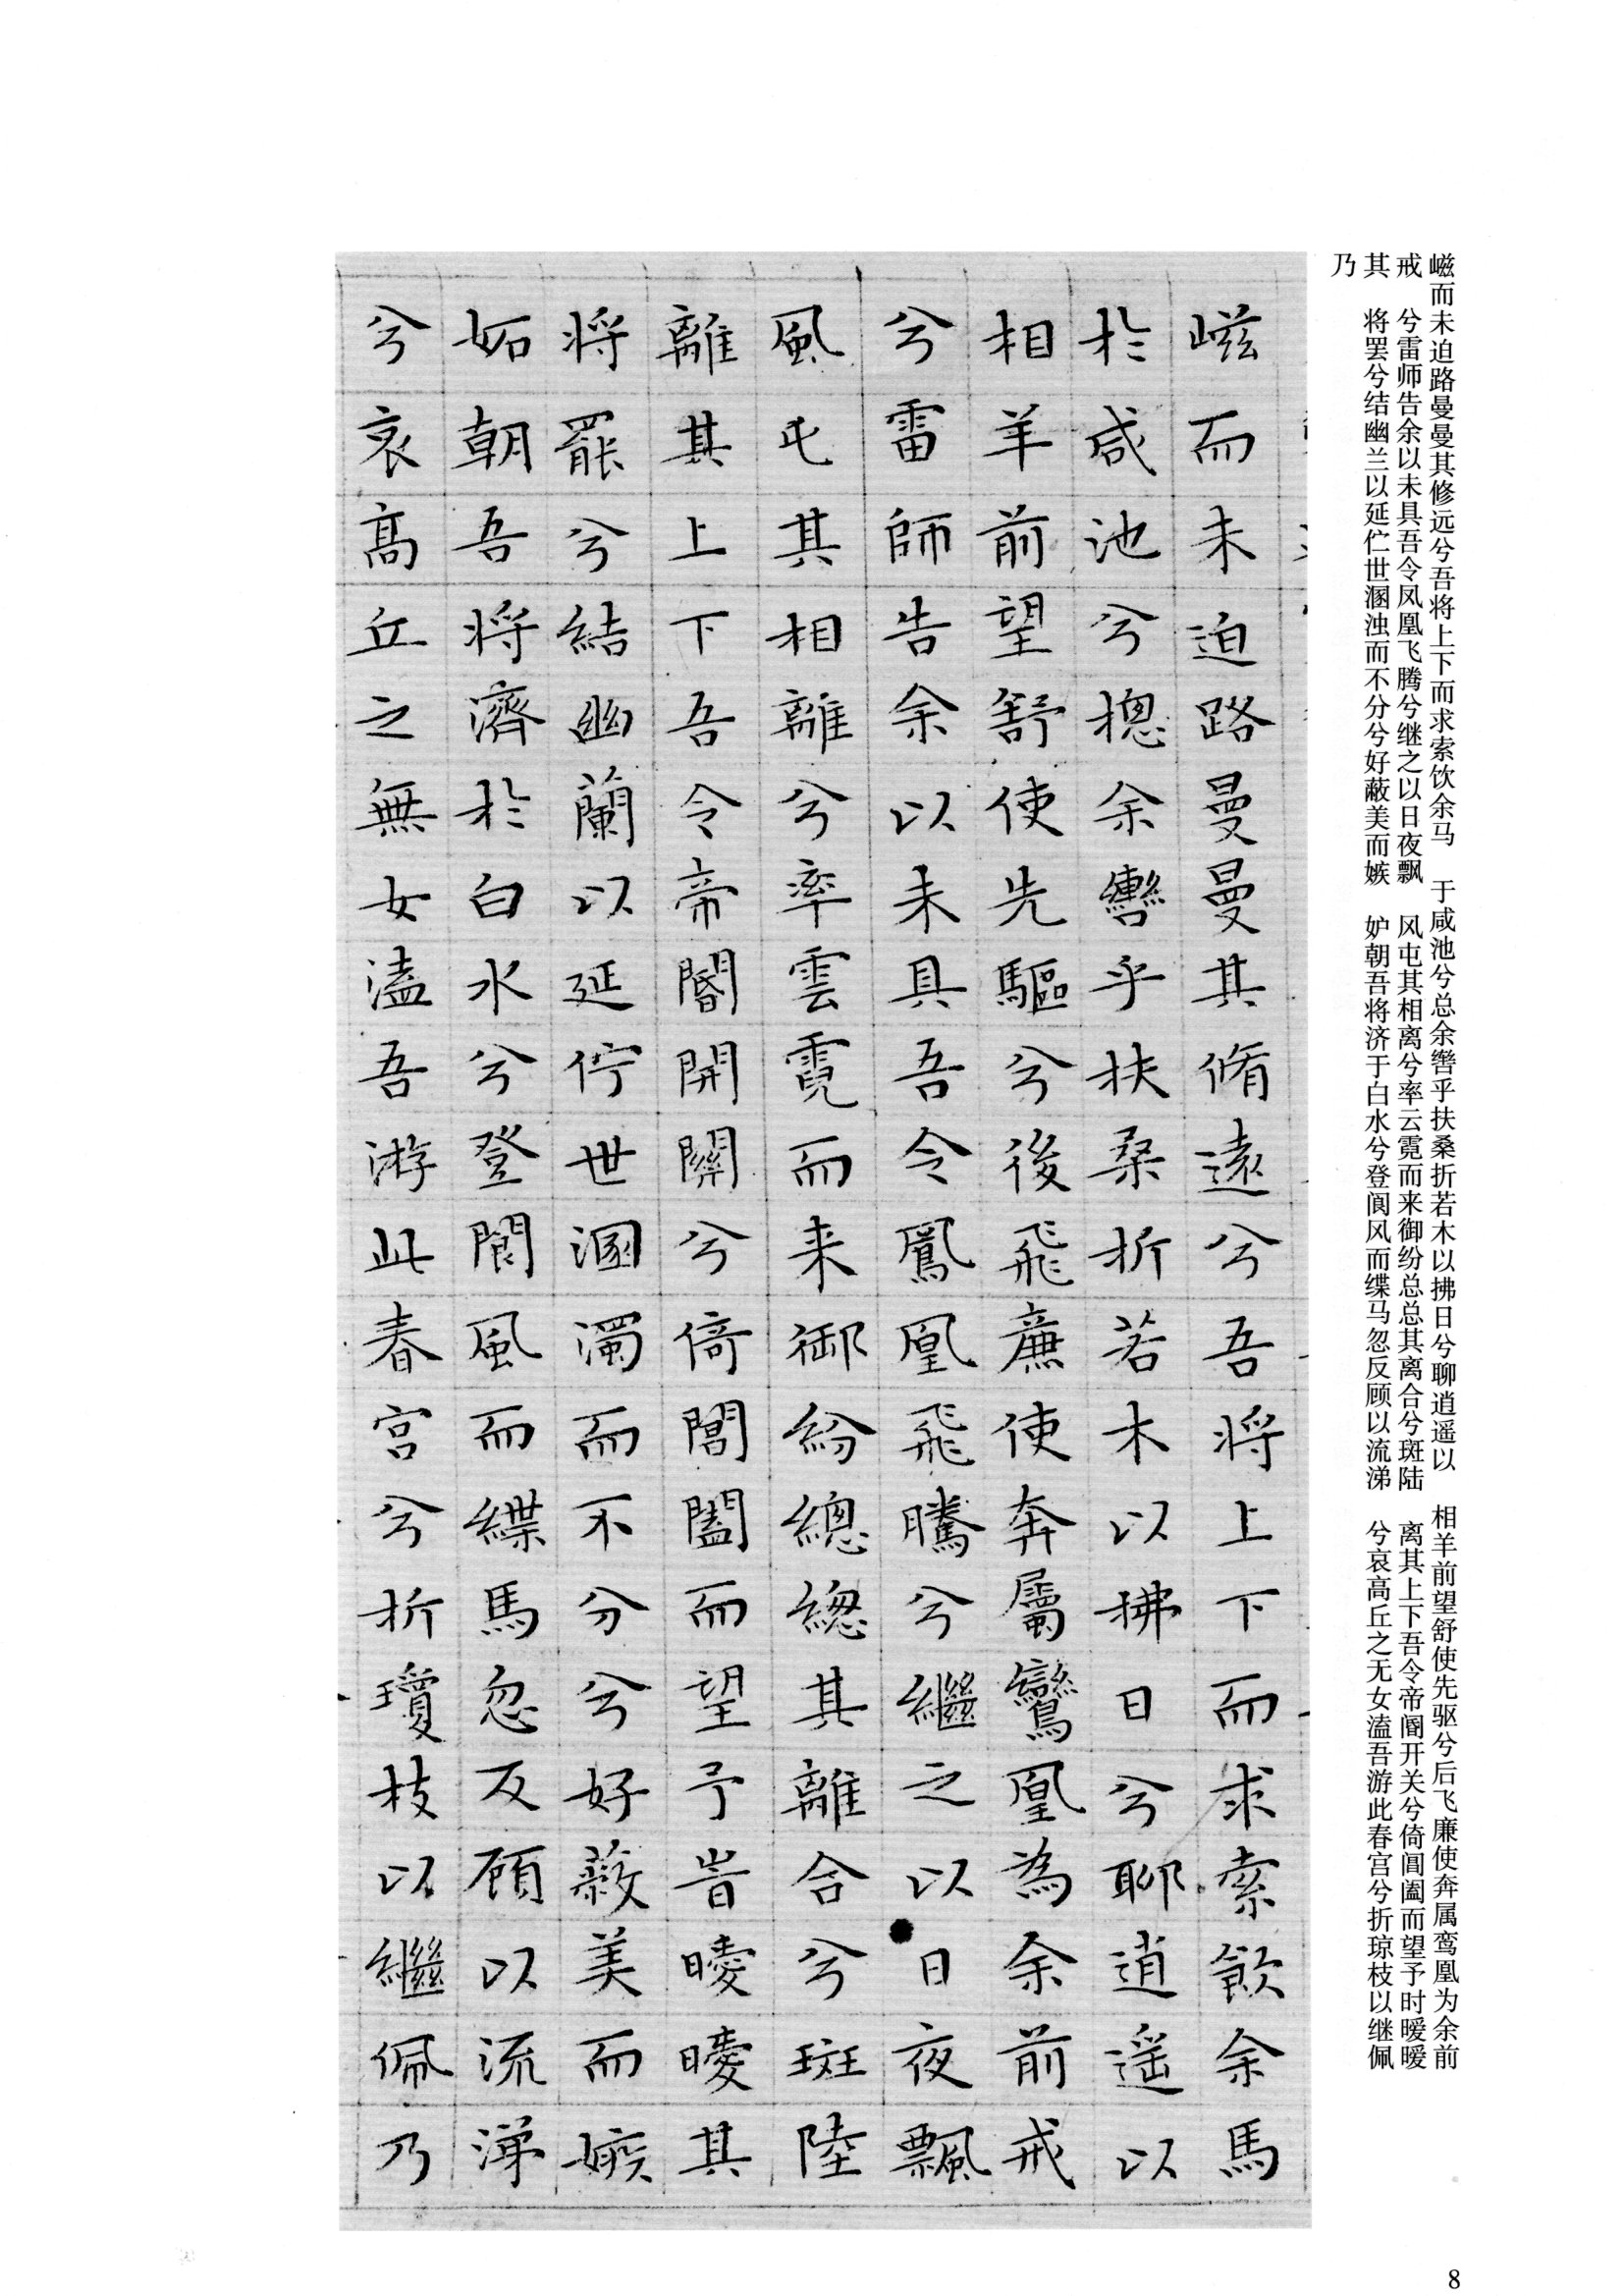 嵫而未迫路曼曼其修远兮吾将上下而求索饮余马　于咸池兮总余辔乎扶桑折若木以拂日兮聊逍遥以　相羊前望舒使先驱兮后飞廉使奔属鸾凰为余前
戒　兮雷师告余以未具吾令凤凰飞腾兮继之以日夜飘　风屯其相离兮率云霓而来御纷总总其离合兮斑陆　离其上下吾令帝阍开关兮倚阊阖而望予时暧暧
其　将罢兮结幽兰以延伫世溷浊而不分兮好蔽美而嫉　妒朝吾将济于白水兮登阆风而緤马忽反顾以流涕　兮哀高丘之无女溘吾游此春宫兮折琼枝以继佩
乃
嵫而未迫路曼曼其脩遠兮吾將上下而求索飲余馬
於咸池兮揔余轡乎扶桑折若木以拂日兮聊逍遥以
相羊前望舒使先驅兮後飛廉使奔屬鸞凰為余前戒
兮雷師告余以未具吾令鳳凰飛騰兮繼之以日夜飄
風屯其相離兮率雲霓而来御紛總總其離合兮斑陸
離其上下吾令帝閽開關兮倚閶闔而望予旹曖曖其
將罷兮結幽蘭以延佇世溷濁而不分兮好蔽美而嫉
妬朝吾將濟於白水兮登閬風而緤馬忽反顧以流涕
兮哀高丘之無女溘吾游此春宫兮折瓊枝以繼佩乃
8